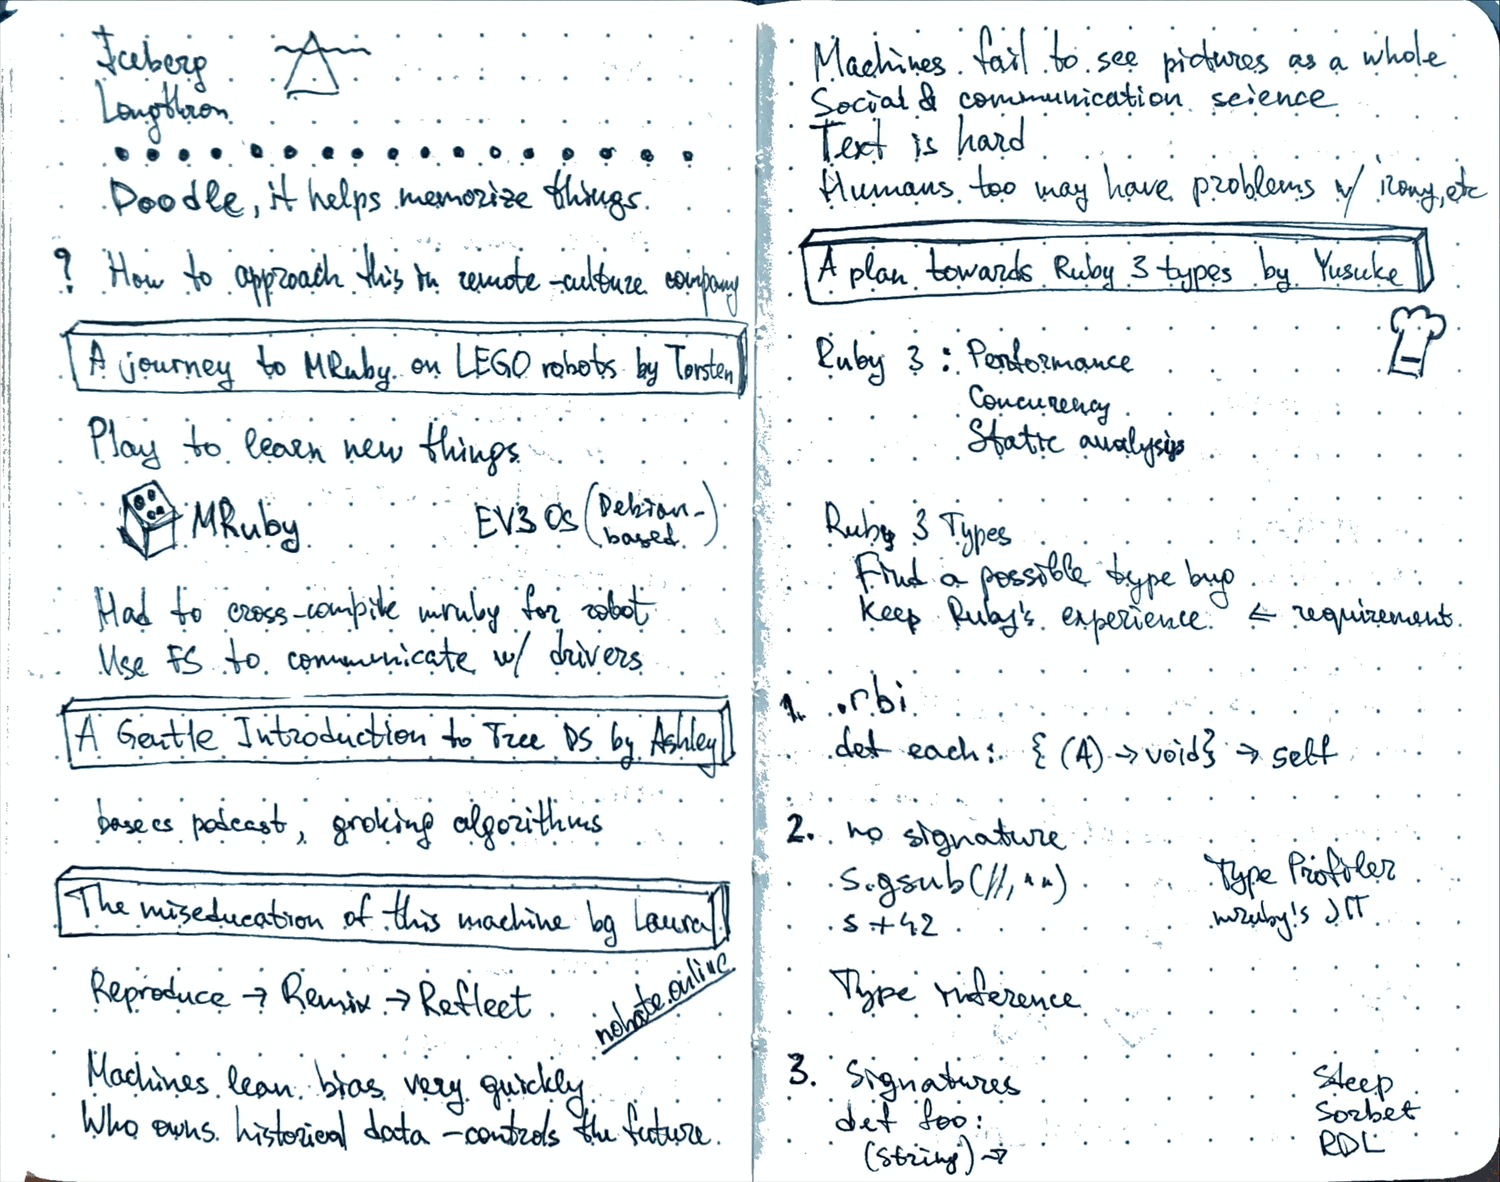 Iceberg
Longthron
Doodle, it helps memorize things.
? How to approach this in remote-culture company
A journey to MRuby on LEGO robots by Torsten
Play to learn new things
MRuby EV3 OS (Debian-based)
Had to cross-compile mruby for robot
Use FS to communicate w/ drivers
A Gentle Introduction to Tree DS by Ashley
basecs podcast, groking algorithms
The miseducation of this machine by Laura
Reproduce → Remix → Reflect
nohate.online
Machines lean bias very quickly
Who owns historical data - controls the future.
Machines fail to see pictures as a whole
Social & communication science
Text is hard
Humans too may have problems w/ irony, etc
A plan towards Ruby 3 types by Yusuke
Ruby 3 : Performance
Concurency
Static analysis
Ruby 3 Types
Find a possible type bug
Keep Ruby's experience ⇐ requirement
1. .rbi
def each: { (A) → void} → self
2. no signature
s.gsub(//, "")
s + 42
Type Profiler
mruby's JIT
Type inference
3. Signatures
def foo:
(String) →
Steep
Sorbet
RDL